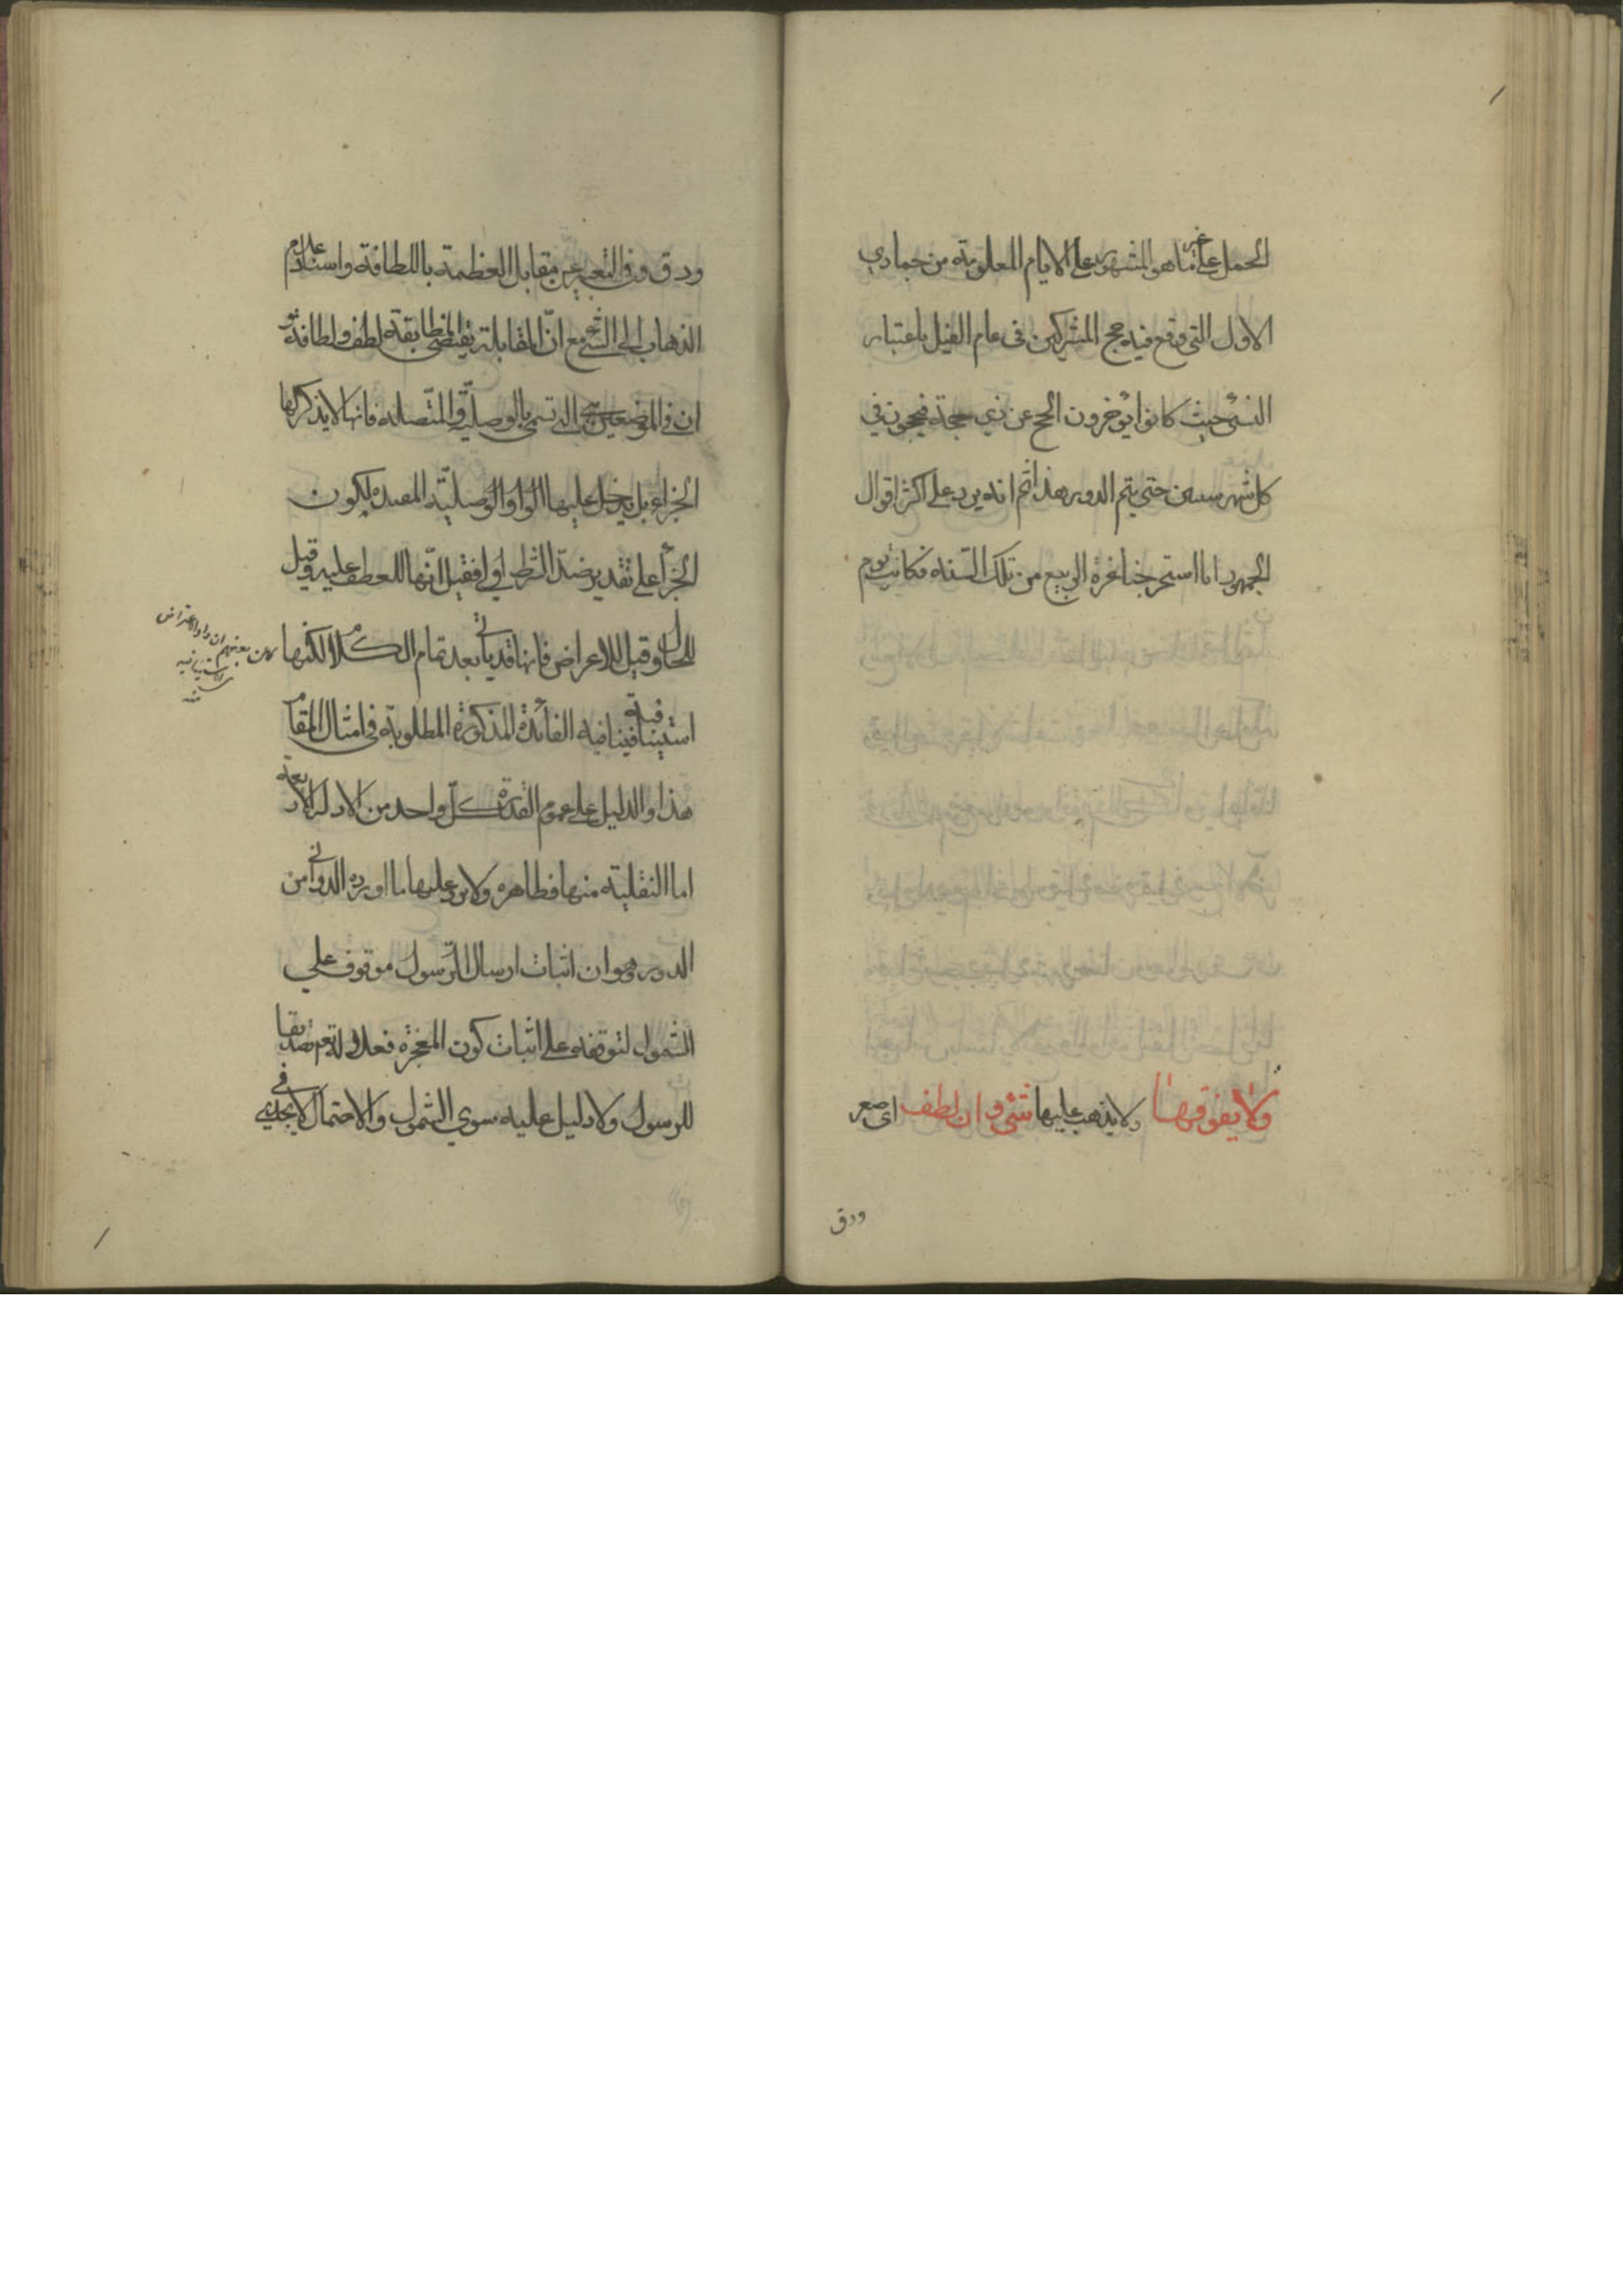 الحمل على غير ما هو المشهور على الايام المعلومة من جمادي
الاول التي وقع فيه حج المشركين في عام الفيل باعتبار
النسئ حيث كانوا يؤخرون الحج عن ذي حجة فيحجون في
كل شهر سنين حتى يتم الدور هذا ثم انه يرد على اكثر اقوال
الجمهور انا استخرجنا غرة الربيع من تلك السنة فكانت يوم
ولا يفوقها ولا يذهب عليها شئ وان لطف اى صغر
ودق
ودق وفي التعبير عن مقابل العظمة باللطافة واسناد عدم
الذهاب الى الشئ مع ان المقابلة يقتضي المطابقة لطف ولطافة و
ان في الموضعين هي التي تسمى بالوصلية والمتصلة فانها لا يذكر لها
الجزاء بل يدخل عليها الواو الوصلية المفيدة لكون
الجزأ على تقدير ضد الشرط اولى فقيل انها للعطف عليه وقيل
للحال وقيل للاعراض فانها قد يأتي بعد تمام الكلام لكنها
استينافية فينا فيه الفائدة المذكورة المطلوبة في امثال المقام
هذا والدليل على عموم القدرة كل واحد من الادلة الاربعة
اما النقلية منها فظاهرة ولا يرد عليها ما اورده الدواني من
الدور وهو ان اثبات ارسال الرسول موقوف على
الشمول لتوقفه على اثبات كون المعجزة فعلا له تعم تصديقا
للرسول ولا دليل عليه سوي الشمول والاحتمال لا يجدي في
بعضهم ان واو الاعتراض
منه